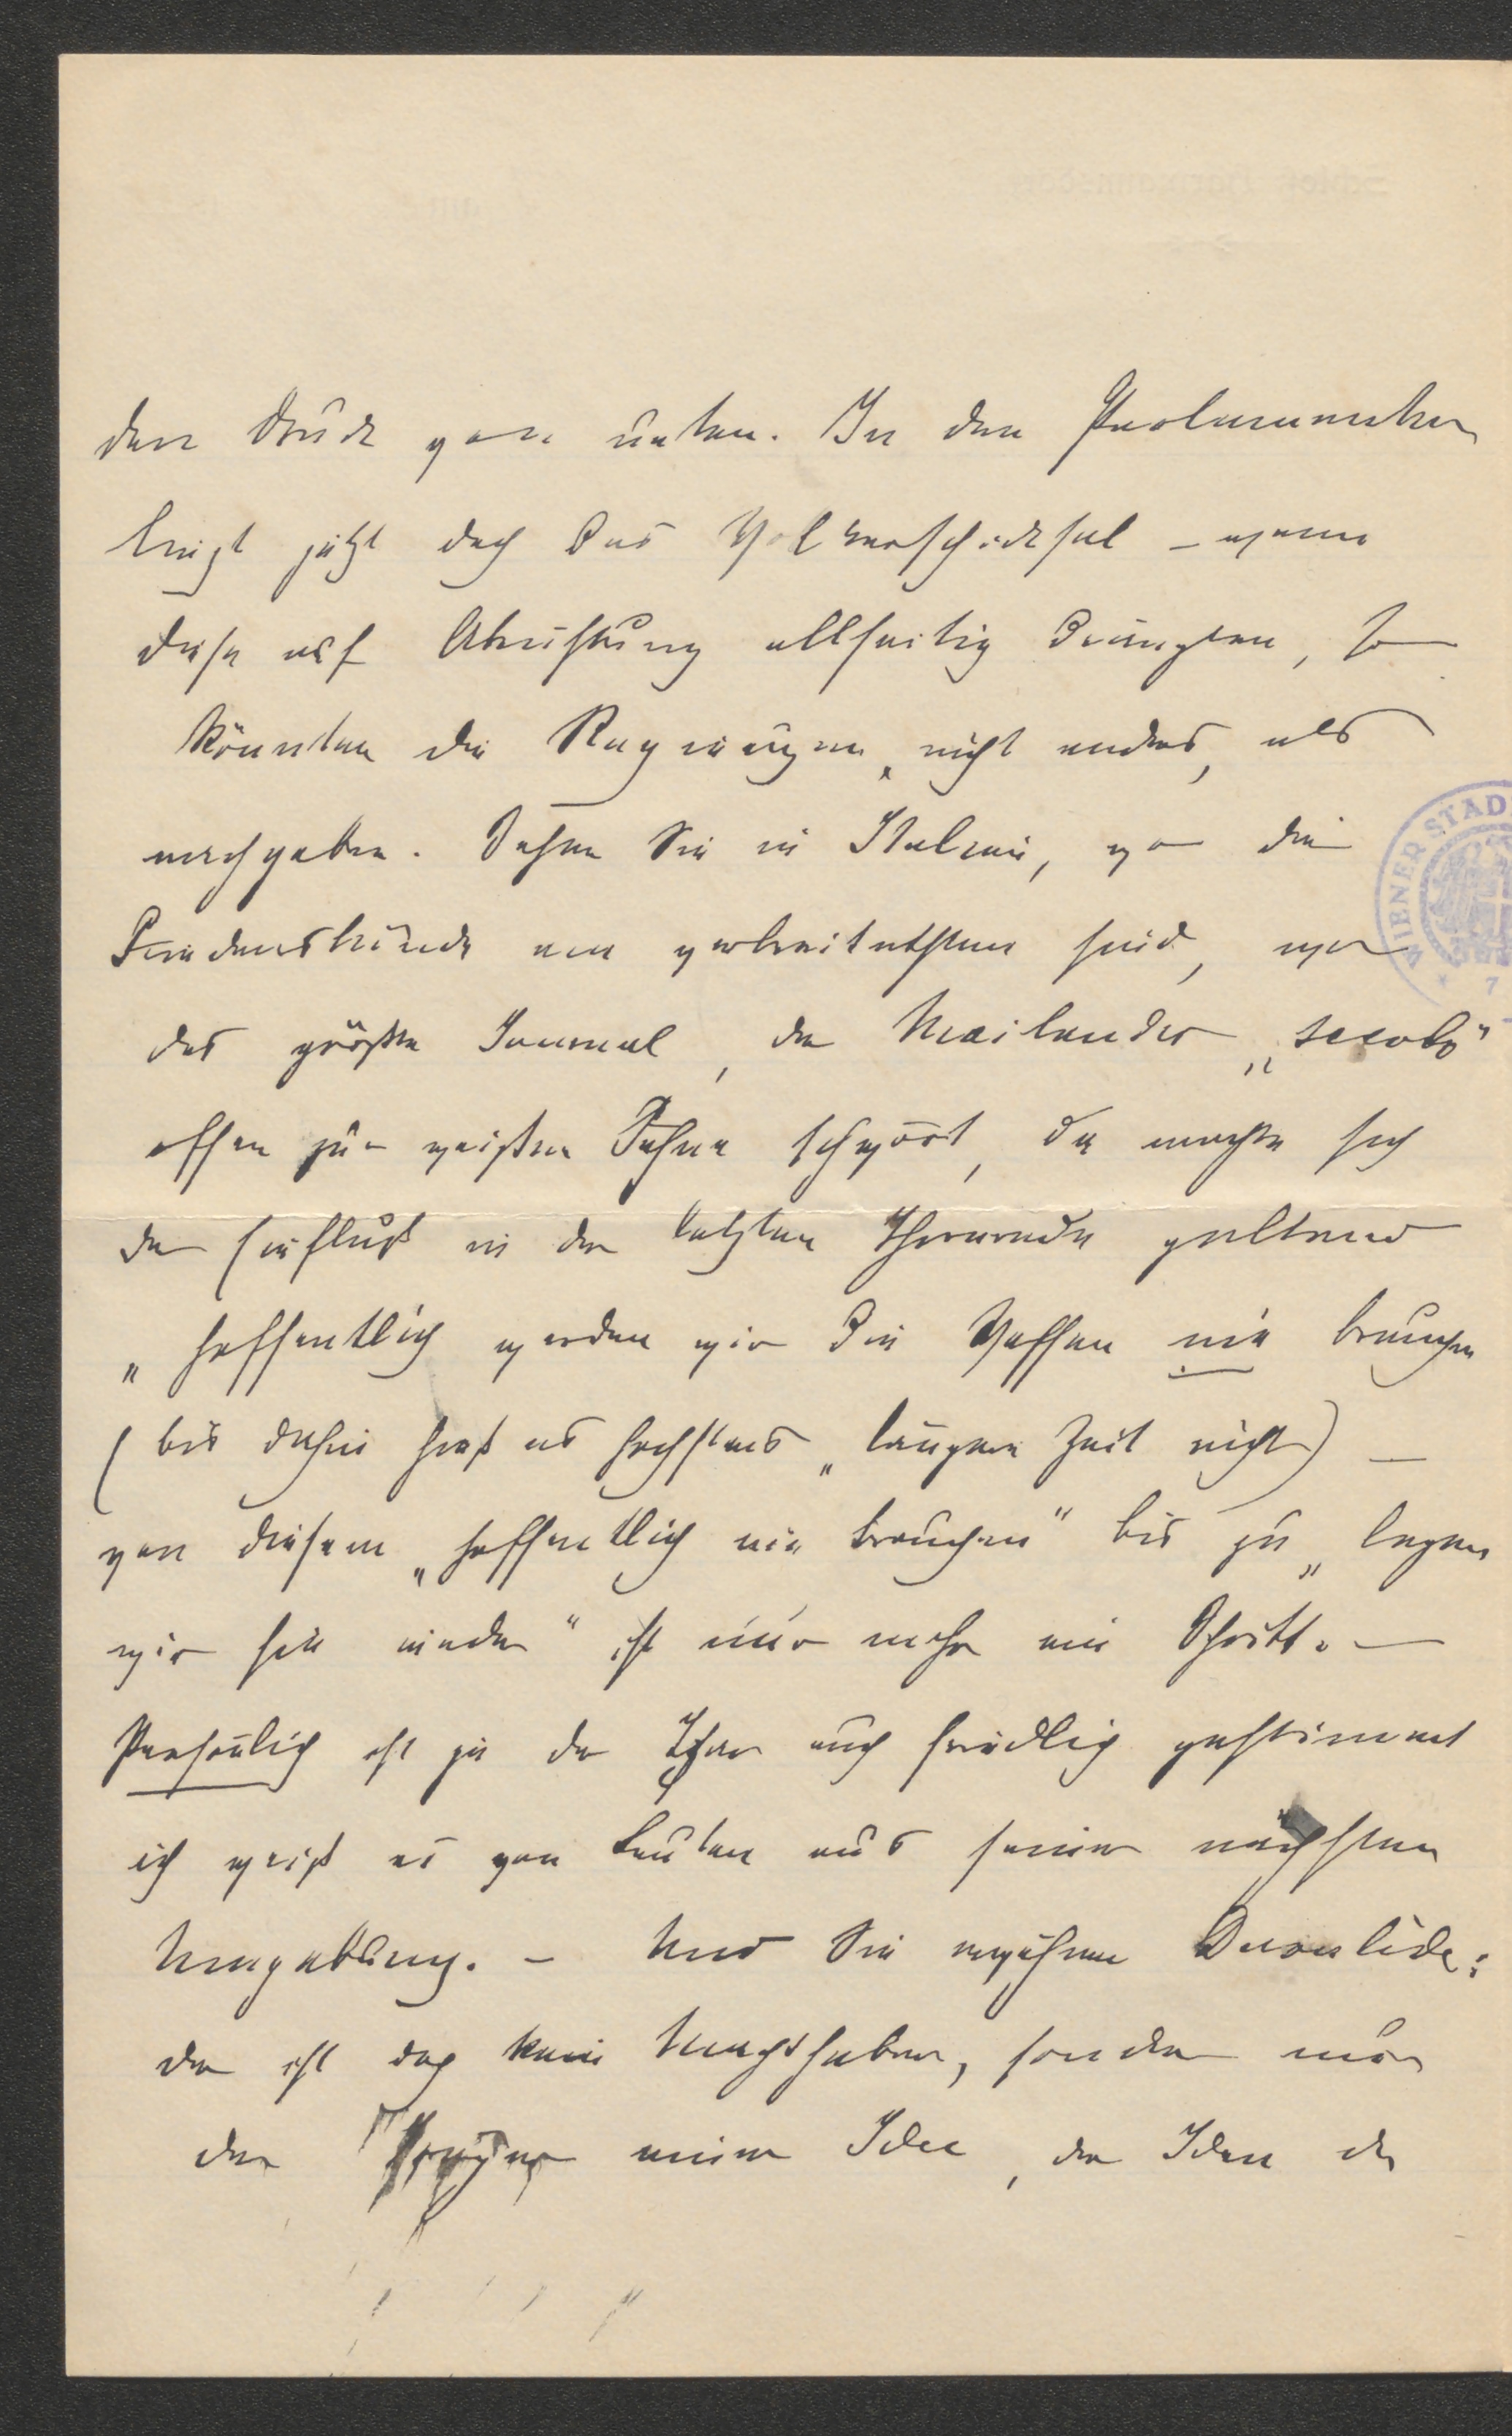 den Druck von unten. In den Parlamenten
liegt jetzt doch das Völkerschicksal – wenn
diese auf Abrüstung allseitig drängten, so
könnten die Regierungen nicht anders, als
nachgeben. Sehen Sie in Italien, wo die
Friedensbünde am verbreitetsten sind, wo
das größte Journal, der Mailänder „Secolo"
offen zur weißen Fahne schwört, da machte sich
der Einfluß in der letzten Thronrede geltend
„hoffentlich werden wir die Waffen nie brauchen
(bis dahin hieß es höchstens „längere Zeit nicht) –
von diesem „hoffentlich nie brauchen" bis zu „legen
wir sie nieder" ist nur mehr ein Schritt. –
Persönlich ist ja der Zar auch friedlich gestimmt
ich weiß es von Leuten aus seiner nächsten
Umgebung. – Und Sie erwähnen Deroulède:
der ist doch kein Machthaber, sondern nur
der meiner Idee, der Idee der
WIENER STAD
7